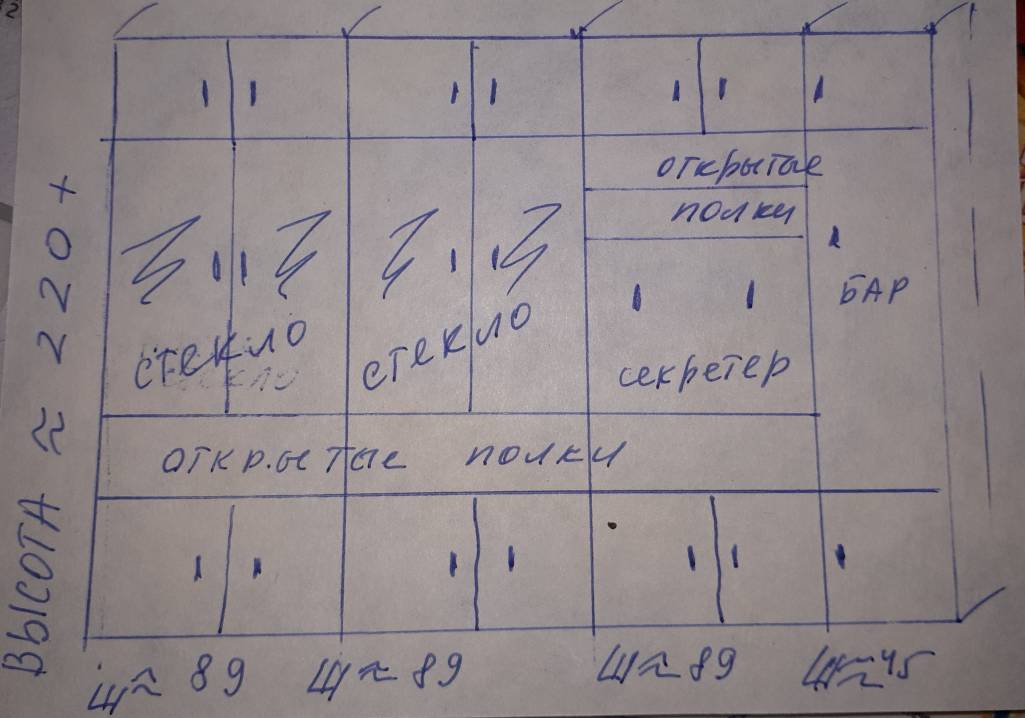 открытые
полки
БАР
стекло
стекло
секретер
открытые полки
ВЫСОТА ≈ 220 +
Ш≈ 89
Ш≈ 89
Ш≈ 89
Ш≈45